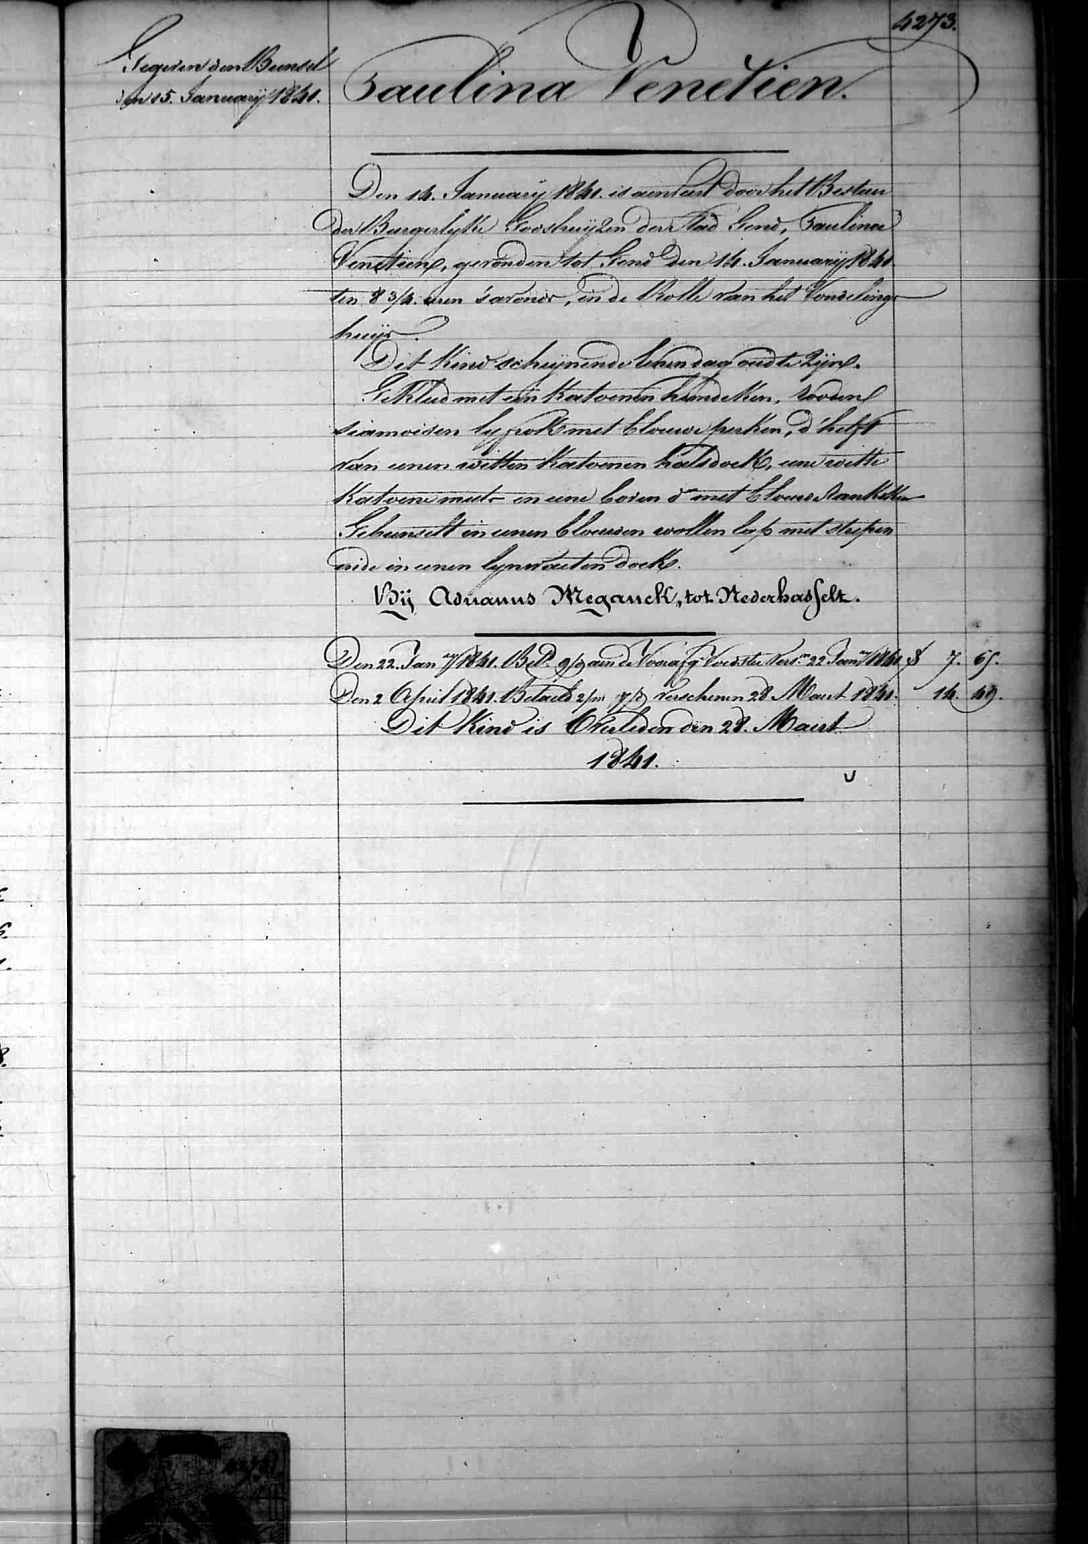 4273.
Gegeven den Bunsel
den 15. January 1841.
Paulina Venetien.
Den 14. January 1841. is aenveert door het Bestier
der Burgerlyke Godshuyzen der Stad Gend, Paulina
Venetien, gevonden tot Gend den 14. January 1841
ten 8 3/4. uren s'avonds, in de Rolle van het Vondelings=
huys.
Dit Kind schynende eenen dag oud te zyn.
Gekleed met een Katoenen hemdeken, rooden
siamoisen lyfrok met blouwe perken, d'helft
van eenen witten Katoenen halsdoek, eene witte
Katoene muts en eene boven do met bloure
Gebunselt in eenen blouwen wollen lap met strepen
ende in eenen lynwaeten doek.
Bij Adrianus Meganck, tot Nederhasselt.
Den 22. Jany 1841. Bet. aen de Voedster Vers. 22 Jany 1841 f 7. 65.
Den 2 April 1841. Betaeld 2/m verschenen 28 Maert 1841. 14. 49.
Dit Kind is Overleden den 28. Maert
1841.